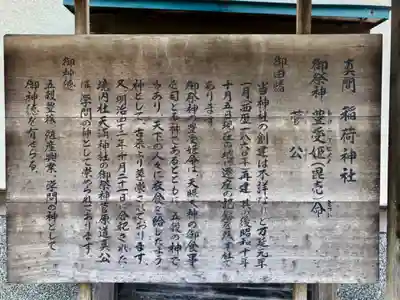 真間 稲荷神社
御祭神 豊受姫(異売)命
菅公
御由緒
当神社の創建は不詳なれど万延元年
一月(西暦一八六〇年)再建 其の後昭和十年
十月五日現在
あります。
御祭神の豊受姫命は、天照大神の御食事
を司どる神であるとともに、五穀の神で
もあり、天下の人々に衣食を給したまう
神として、古来より崇敬されております。
又、明治四十二年十月二十一日合祀された
境内社天満神社の御祭神菅原道真公
は、学問の神として崇められております。
御神徳
五穀豊穣、殖産興業、学問の神として
御神徳を有せらる。